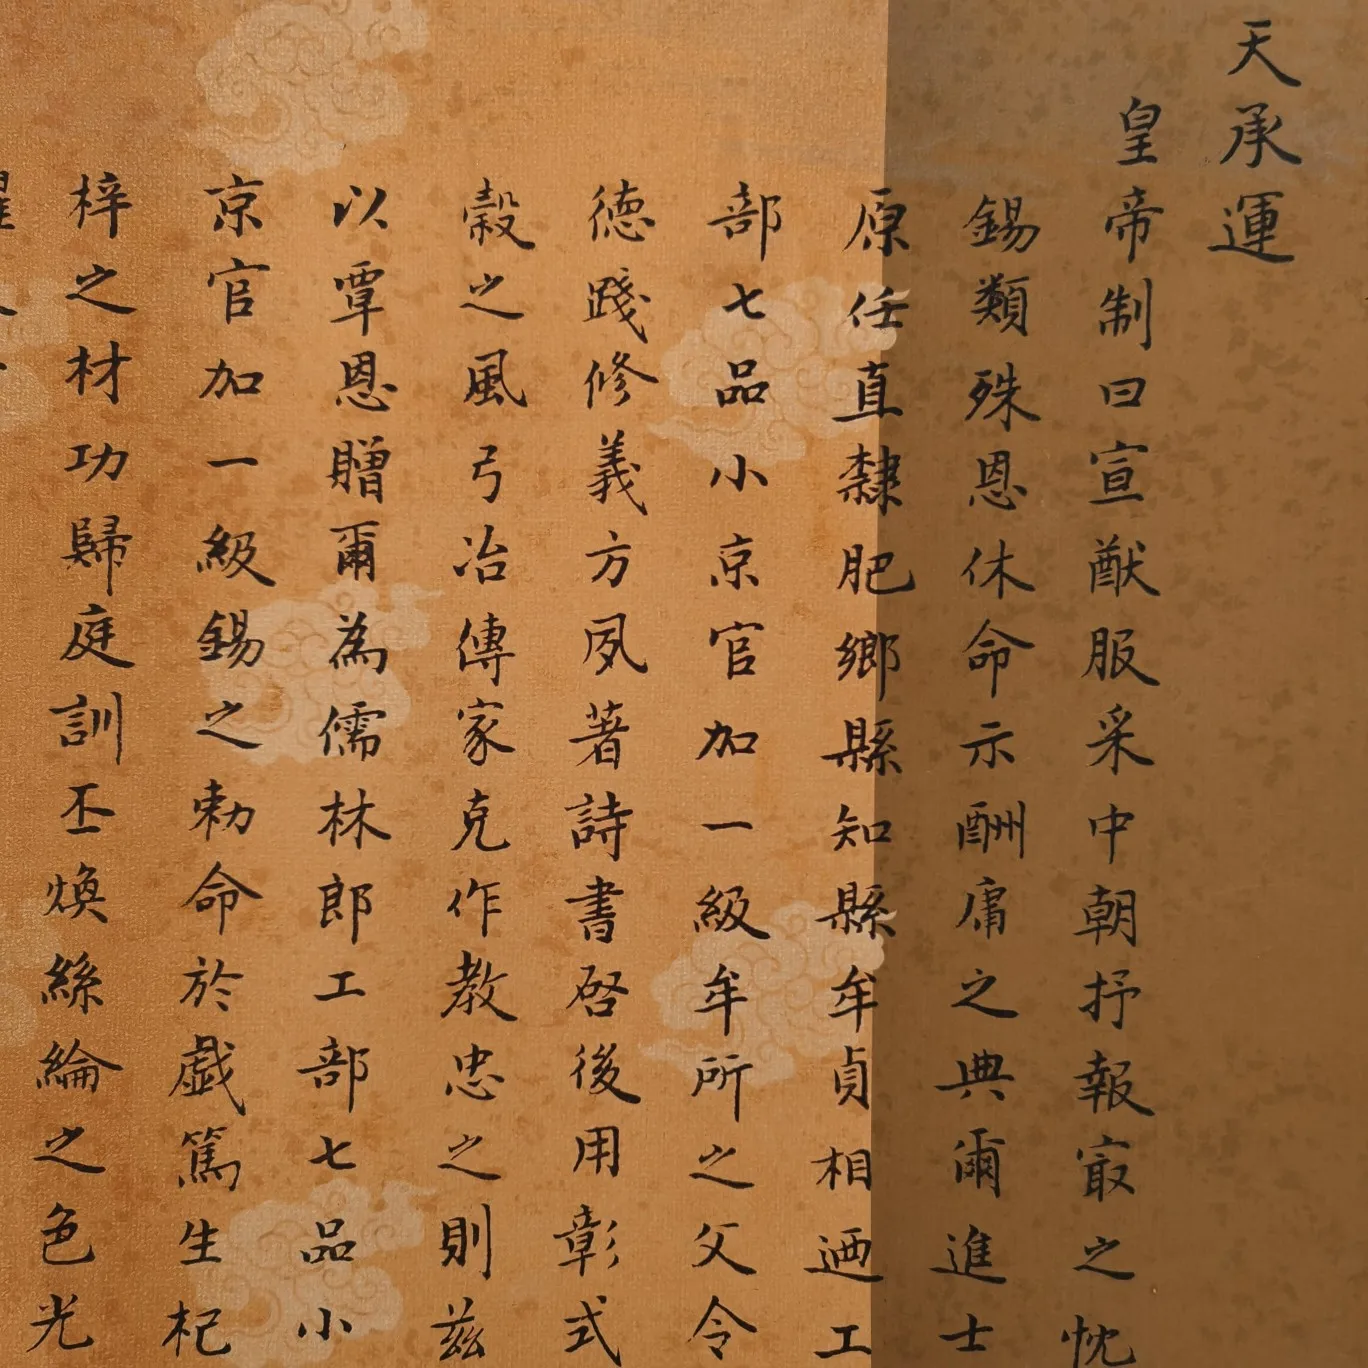 天承運
皇帝制曰宣猷服采中朝抒報㝡之忱
錫類殊恩休命示酬庸之典爾進士
原任直隸肥鄉縣知縣牟貞相迺工
部七品小京官加一級牟所之父令
德踐修義方夙著詩書啓後用彰式
穀之風弓冶傳家克作教忠之則茲
以覃恩贈爾為儒林郎工部七品小
京官加一級錫之勅命於戱篤生杞
梓之材功歸庭訓丕煥絲綸之色光